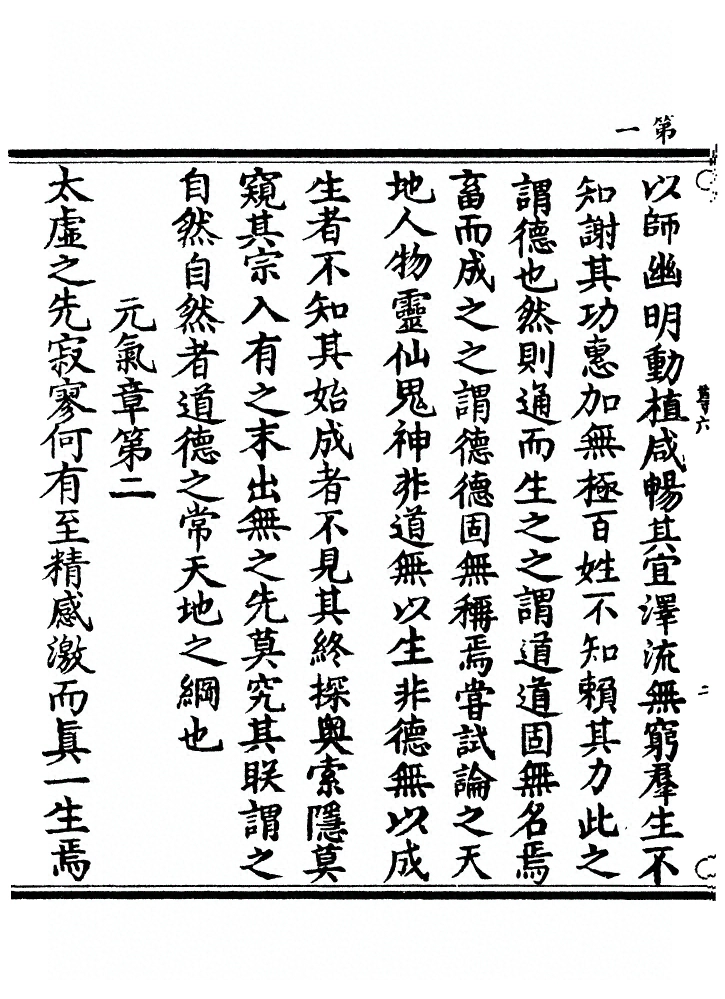 第一
以師幽明動植咸暢其宜澤流無窮羣生不
知謝其功惠加無極百姓不知賴其力此之
謂德也然則通而生之之謂道道固無名焉
畜而成之之謂德德固無稱焉嘗試論之天
地人物靈仙鬼神非道無以生非德無以成
生者不知其始成者不見其終探奧索隱莫
窺其宗入有之末出無之先莫究其眹謂之
自然自然者道德之常天地之綱也
元氣章第二
太虛之先寂寥何有至精感激而眞一生焉
六
二